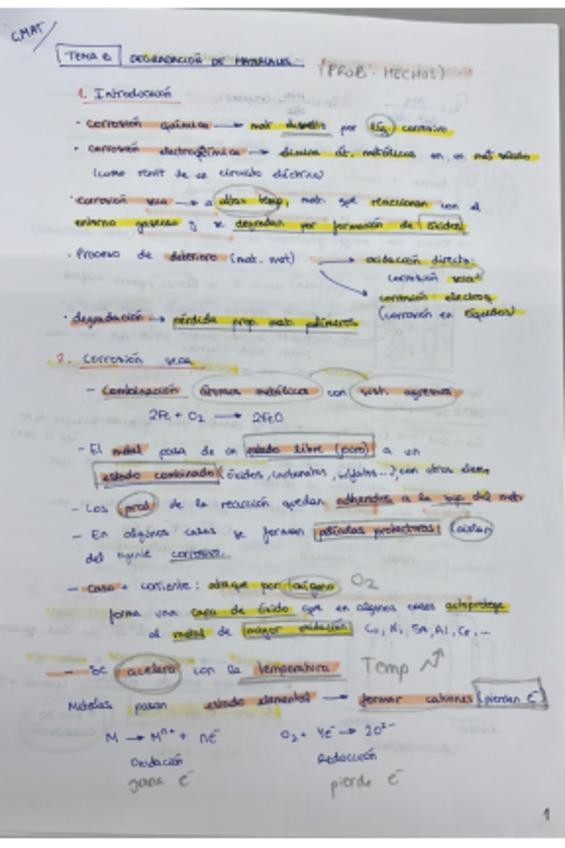 CMAT
TEMA 8 DEGRADACIÓN DE MATERIALES (PROB. HECHOS)
1. Introducción
· Corrosión química → mat disuelto por líq. corrosivo
· Corrosión electroquímica → disuelve át. metálicos en un mat sólido
(como result de un circuito eléctrico)
· Corrosión seca → a altas temp, mat. que reaccionan con el
entorno gaseoso y se degradan por formación de óxidos
· Proceso de deterioro (mat. met) → oxidación directa
corrosión seca
→ corrosión electroq
(corrosión en líquidos)
· degradación → pérdida prop. mat. polímeros
2. Corrosión seca
- Combinación átomos metálicos con sust. agresivas
2Fe + O2 → 2FeO
- El metal pasa de un estado libre (puro) a un
estado combinado (óxidos, carbonatos, sulfatos...) con otros elem
- Los prod de la reacción quedan adheridos a la sup. del met
- En algunos casos se forman películas protectoras (aislan
del agente corrosivo
- Caso + corriente: ataque por oxígeno O2
forma una capa de óxido que en algunos casos autoprotege
al metal de mayor oxidación Cu, Ni, Sn, Al, Cr, ...
- Se acelera con la temperatura Temp
Metales pasan estado elemental → formar cationes (pierden e-)
M → Mn+ + ne- O2 + 4e- → 2O2-
Oxidación Redacción
gana e- pierde e-
1